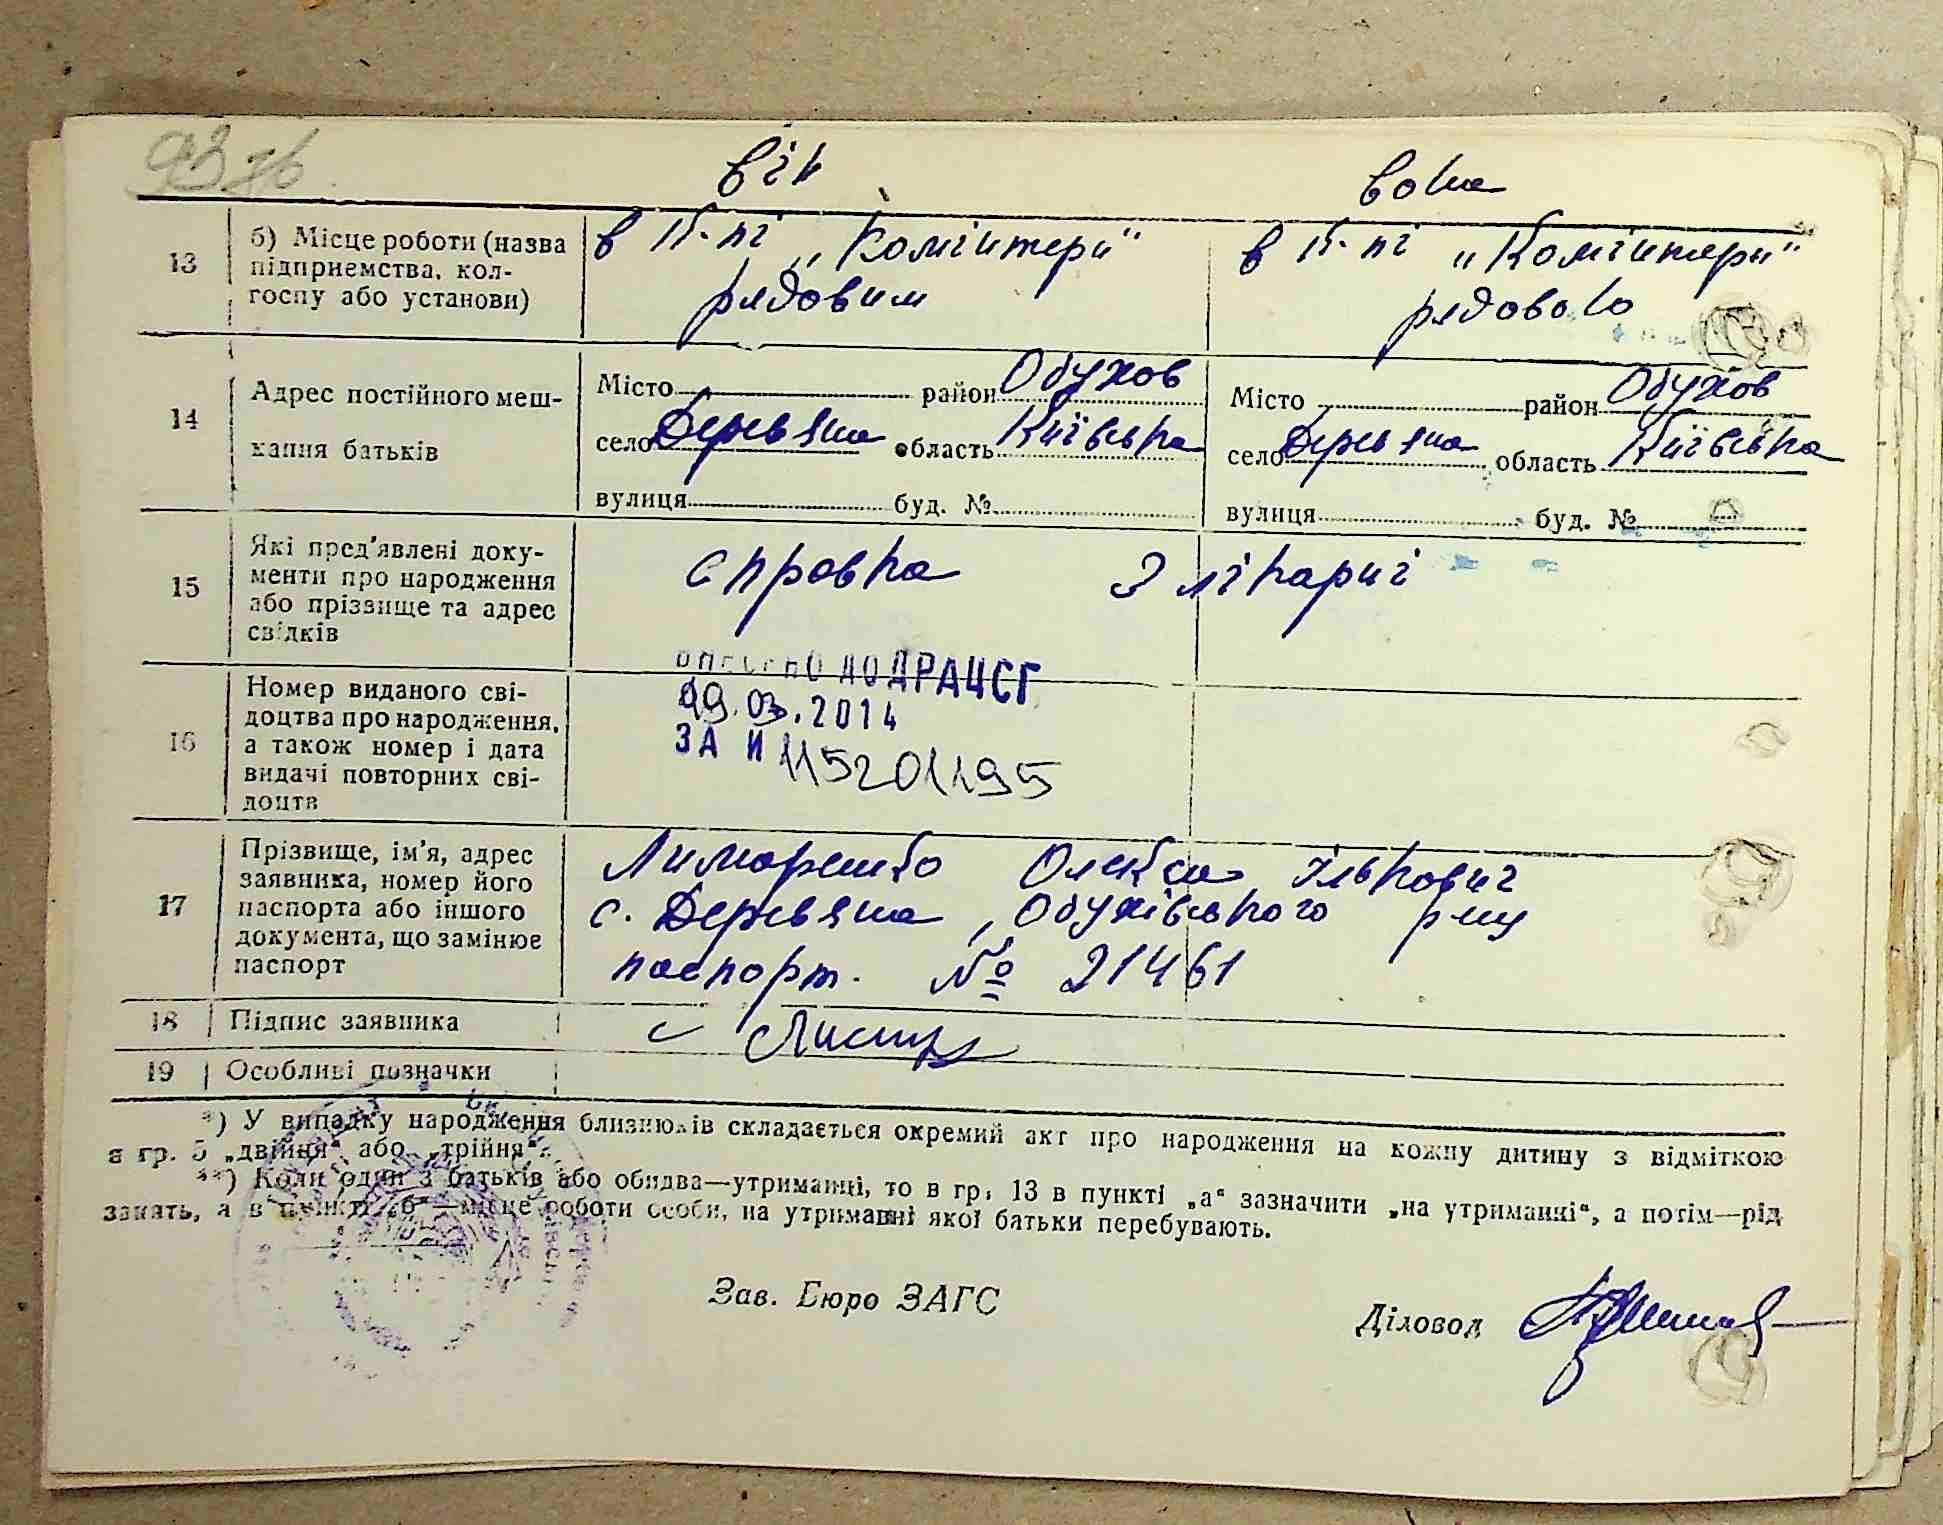 93 зв
він вона
13 б) Місце роботи (назва підприємства, колгоспу або установи)
в к-пі „Комінтерн" рядовим
в к-пі „Комінтерн" рядовою
14 Адрес постійного мешкання батьків
Місто район Обухов
село Деревяна область Київська
вулиця буд. №
Місто район Обухов
село Деревяна область Київська
вулиця буд. №
15 Які пред'явлені документи про народження або прізвище та адрес свідків
справка з лікарні
16 Номер виданого свідоцтва про народження, а також номер і дата видачі повторних свідоцтв
ВНЕСЕНО ДО ДРАЦСГ
.03.2014
ЗА №
17 Прізвище, ім'я, адрес заявника, номер його паспорта або іншого документа, що замінює паспорт
Лимаренко Олекса Ількович
с. Деревяна, Обухівського р-ну
паспорт. № 21461
18 Підпис заявника
19 Особливі позначки
*) У випадку народження близнюків складається окремий акт про народження на кожну дитину з відміткою
в гр. 5 „двійня" або „трійня".
**) Коли один з батьків або обидва—утриманні, то в гр. 13 в пункті „а" зазначити „на утриманні", а потім—рід
занять, а в пункті „б"—місце роботи особи, на утриманні якої батьки перебувають.
Зав. Бюро ЗАГС
Діловод